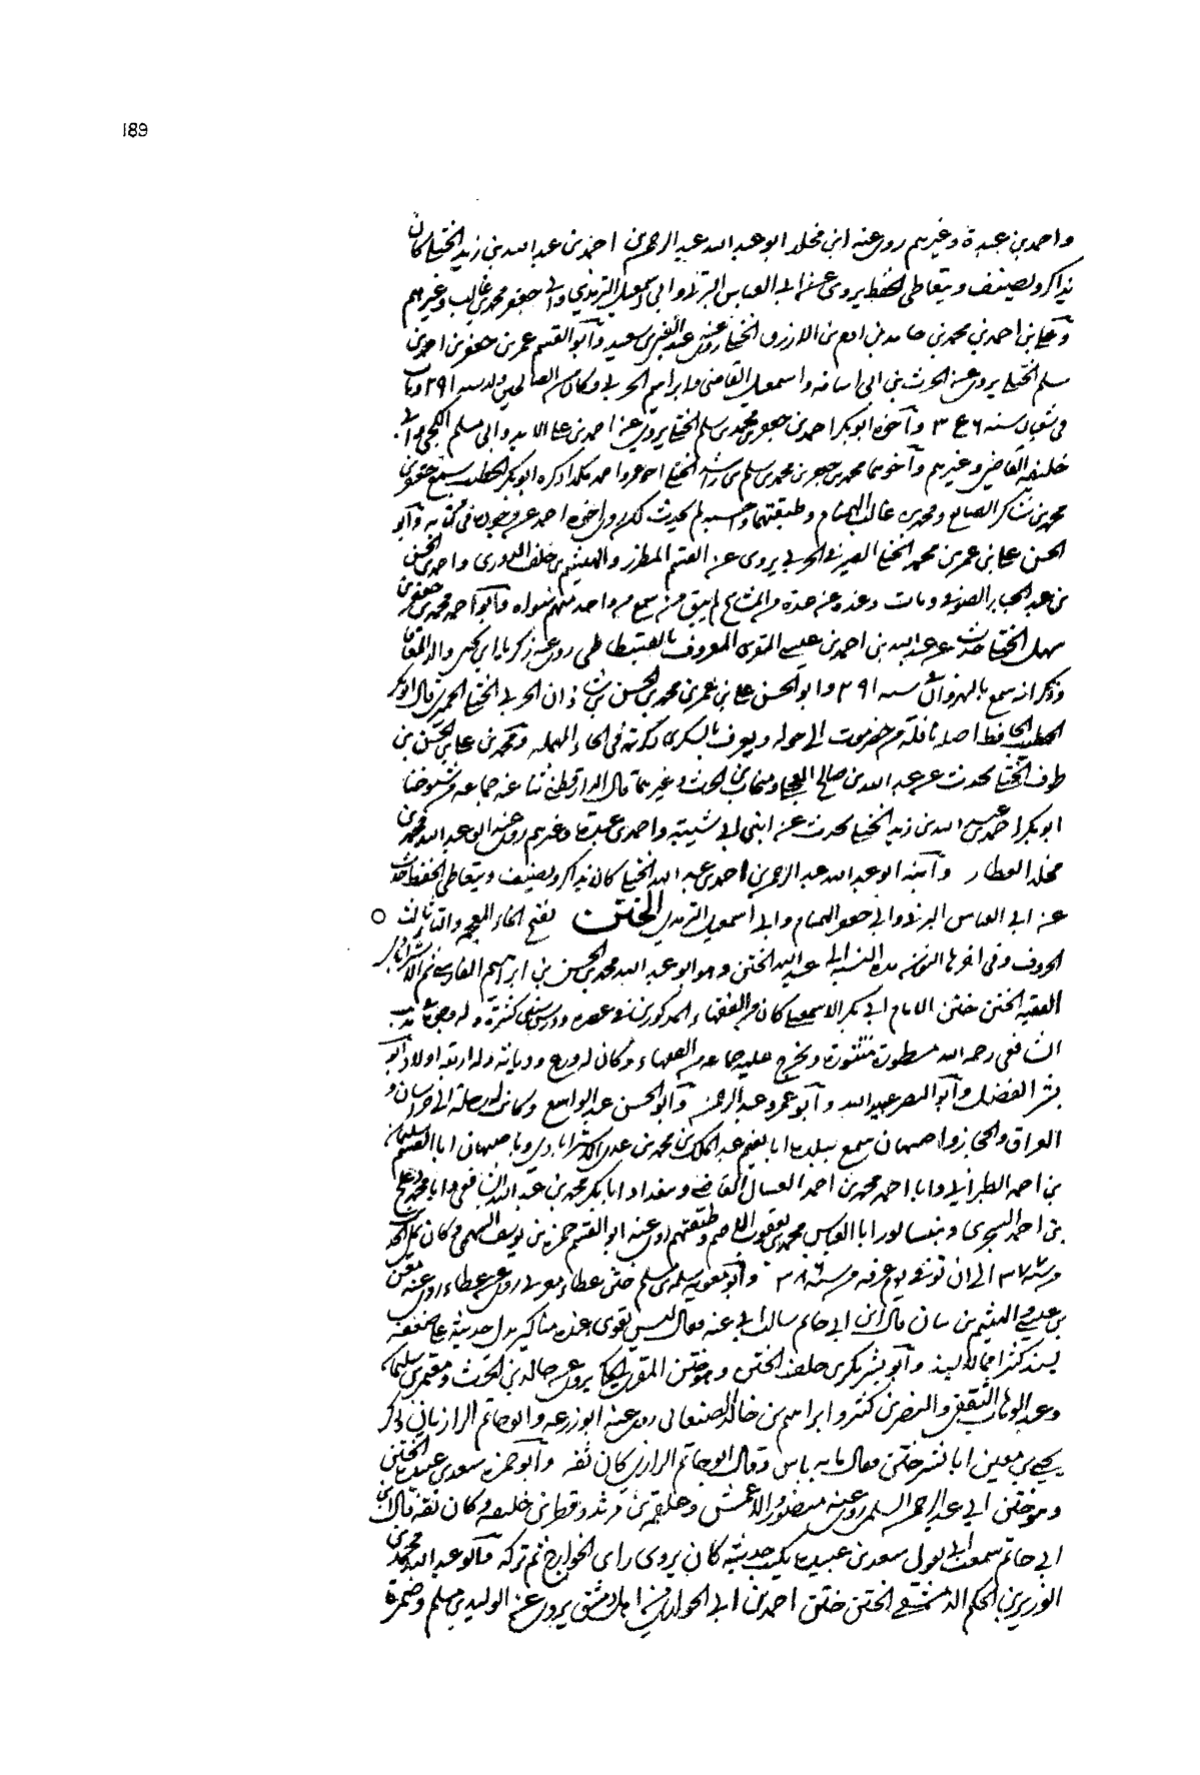 189
واحمد بن عبدة وغيرهم روى عنه ابن مخلد ابو عبد الله عبد الرحمن بن احمد بن عبد الله بن زيد الختلي كان
يذاكر ويصنف ويتعاطى الحفظ يروى عن ابي العباس البرتي و ابي اسمعيل الترمذي وابي جعفر محمد بن غالب وغيرهم
وعلي بن احمد بن محمد بن حامد بن ادم بن الازرق الختلي روى عنه عبد الغني بن سعيد وابو القسم عمر بن جعفر بن احمد بن
سلم الختلي يروى عن الحرث بن ابي اسامة و اسمعيل القاضي وابراهيم الحربي وكان من الصالحين ولد سنه ٢٩١ ومات
في شعبان سنه ٣٤٦ وآخوه ابو بكر احمد بن جعفر بن محمد بن سلم الختلي يروى عن احمد بن علي الابار وابي مسلم الكجي وابي
خليفه القاضي وغيرهم وآخوهما محمد بن جعفر بن محمد بن سلم بن راشد الختلي اخو عمر واحمد هكذا ذكره ابو بكر الخطيب سمع جعفر بن
محمد بن شاكر الصايغ ومحمد بن غالب التمتام وطبقتهما ولم يحدث في كتابه وآبو
الحسن علي بن عمر بن محمد الختلي الصيرفي الحربي يروى عن القسم المطرز والهيثم بن خلف الدورى واحمد بن الحسن
بن عبد الجبار الصوفي ومات وعنده عن عدة من المشايخ لم يبق من سمع من واحد منهم سواه وآبو احمد محمد بن جعفر بن
سهل الختلي حدث عن عبد الله بن احمد بن عيسى المقرى المعروف بالفسطاطي روى عنه
وذكر انه سمع بالنهروان سنه ٢٩١ وابو الحسن علي بن عمر بن محمد بن الحسن بن شاذان الحربي الختلي الحميري قال ابو بكر
الخطيب الحافظ اصله ناقلة من حضرموت الى ختل ويعرف بالسكرى ذكرته في الحاء المهملة ومحمد بن علي بن الحسن بن
طوق الختلي يحدث عن عبد الله بن صالح العجلي ومنجاب بن الحرث وغيرهما قال الدارقطني ثنا عنه جماعه من شيوخنا
ابو بكر احمد بن عبد الله بن زيد الختلي يحدث عن ابني ابي شيبة واحمد بن عبدة وغيرهم روى عنه ابو عبد الله محمد بن
مخلد العطار وآبنه ابو عبد الله عبد الرحمن بن احمد بن عبد الله الختلي كان يذاكر ويصنف ويتعاطى الحفظ حدث
عن ابي العباس البرتي وابي جعفر التمتام وابي اسمعيل الترمذي الختن بفتح الخاء المعجمه والتاء ثالث
الحروف وفى اخرها النون هذه النسبة ابي عبد الله الختن وهو ابو عبد الله محمد بن الحسن بن ابراهيم الفارسي ثم الاستراباذي
الفقيه الختن ختن الامام ابي بكر الاسمعيلي كان من الفقهاء المذكورين في عصره ودرس سنين كثيرة وله وجوه في مذهب
الشافعي رحمه الله مسطورة منشورة وتخرج عليه جماعه من الفقهاء وكان له ورع وديانة وله اربعة اولاد ابو
بشر الفضل وآبو النصر عبيد الله وآبو عمرو عبد الرحمن وآبو الحسن عبد الواسع وكانت له رحلة الى خراسان و
العراق والحجاز واصبهان سمع ببلده ابا نعيم عبد الملك بن محمد بن عدي الاستراباذي وباصبهان ابا القسم سليمان
بن احمد الطبراني وابا احمد محمد بن احمد العسال القاضي وببغداد ابا بكر محمد بن عبد الله الشافعي وابا محمد دعلج
بن احمد السجزى وبنيسابور ابا العباس محمد بن يعقوب الاصم وطبقتهم روى عنه ابو القسم حمزه بن يوسف السهمي وكان
من سنه ٣٧٧ الى ان توفى يوم عرفة من سنه ٣٨٦ وآبو معويه سلمه بن مسلم ختن عطاء يروى عن عطاء روى عنه معن
بن عيسى والهيثم بن قال ابن ابي حاتم سالت ابي عنه فقال ليس بقوى عنده مناكير يدل حديثه على ضعفه
وآبو بشر بكر بن خلف الختن وهو ختن المقرى المكي يروى عن خالد بن الحرث ومعتمر بن سليمان
وعبد الوهاب الثقفي والنضر بن كثير و ابراهيم بن خالد الصنعاني روى عنه ابو زرعه وابو حاتم الرازيان ذكر
يحيى بن معين ابا بشر ختن فقال ما به باس وقال ابو حاتم الرازي كان ثقه وآبو حمزه سعد بن عبيدة الختن
وهو ختن ابي عبد الرحمن السلمي روى عنه منصور والاعمش وعلقمه بن مرثد وفطر بن خليفه وكان ثقه قال ابن
ابي حاتم سمعت ابي يقول سعد بن عبيدة يكتب حديثه كان يروى راى الخوارج ثم تركه وآبو عبد الله محمد بن
الوزير بن الحكم الدمشقي الختن ختن احمد بن ابي الحوارى من اهل دمشق يروى عن الوليد بن مسلم وضمرة